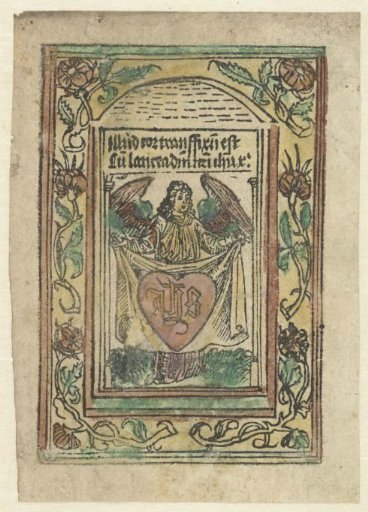 Illud cor transfixū est
Cū lancea dn̄i nr̄i ihu x:
yhs